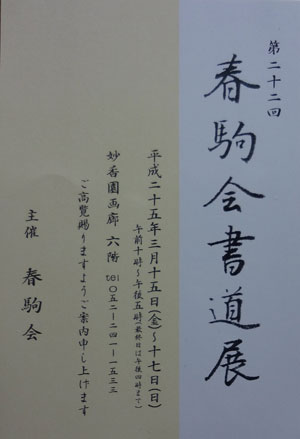 第二十二回
春駒会書道展
平成二十五年三月十五日(金)~十七日(日)
午前十時~午後五時(最終日は午後四時まで)
妙香園画廊 六階 tel 〇五二-二四一-一五三三
ご高覧賜りますようご案内申し上げます
主催 春駒会